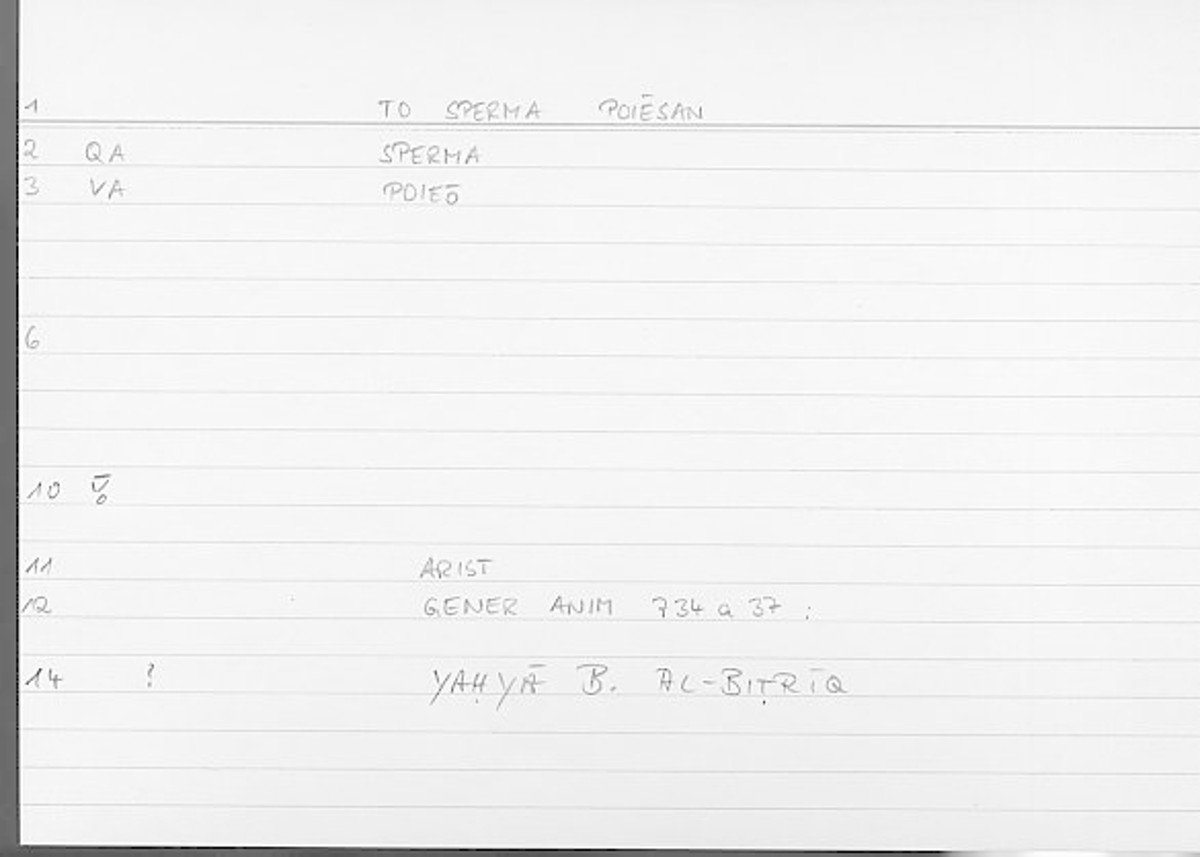 1 TO SPERMA POIĒSAN
2 QA SPERMA
3 VA POIEŌ
6
10
11 ARIST
12 GENER ANIM 734 a 37 :
14 ? YAḤYĀ B. AL-BIṬRĪQ